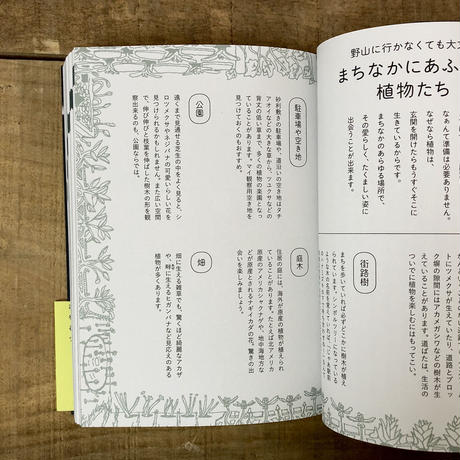 野山に行かなくても大丈
まちなかにあふ
植物たち
なぁんて準備は必要ありません。
なぜなら植物は、
玄関を開けたらもうすぐそこに
生きているからです。
まちなかのあらゆる場所で、
その愛らしく、たくましい姿に
出会うことが出来ます。
街路樹
まちを歩いていれば必ずどこかに樹木が植え
られています。シンボルツリーになっている
トにツメクサが生えていたり、道路とブロッ
ク塀の隙間にはアカメガシワなどの樹木が生
えていることがあります。道ばたは、生活の
ついでに植物を楽しむにはもってこい。
駐車場や空き地
砂利敷きの駐車場や、道沿いの空き地はタチ
アオイなどの大きな草から、ツユクサなどの
背丈の低い草まで、多くの植物の楽園となっ
ていることがあります。マイ観察用空き地を
見つけておくのもおすすめ。
公園
遠くまで見通せる芝生の中をよく見ると、シ
ロツメクサやネジバナの可愛いらしい花を
見つけられるかもしれません。また広い空間
で、伸び伸びと枝葉を伸ばした樹木の形を観
察出来るのも、公園ならでは。
庭木
住居の庭には、海外が原産の植物が植えられ
ていることがあります。たとえば北アメリカ
原産のアメリカシャクナゲや、地中海地方な
どが原産とされるナギイカダの花。驚きの出
会いを楽しみましょう。
畑
畑に生える雑草でも、驚くほど綺麗なアカザ
や、畔に生えるヒガンバナ様ど見応えのある
植物が多くあります。